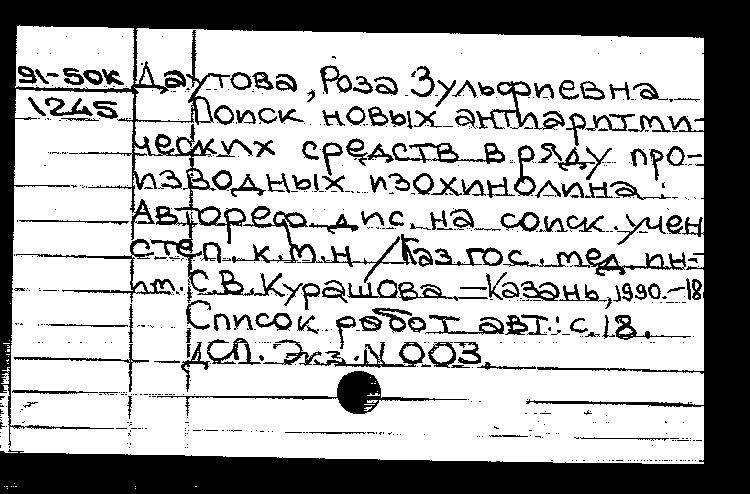 91-50к Даутова, Роза Зульфиевна
1245 Поиск новых антиаритми-
ческих средств в ряду про-
изводных изохинолина :
Автореф. дис. на соиск. учен
степ. к.м.н. / Каз. гос. мед. ин-
т им. С.В. Курашова. – Казань, 1990. – 18
Список работ авт.: с. 18.
ДСП. Экз. N 003.